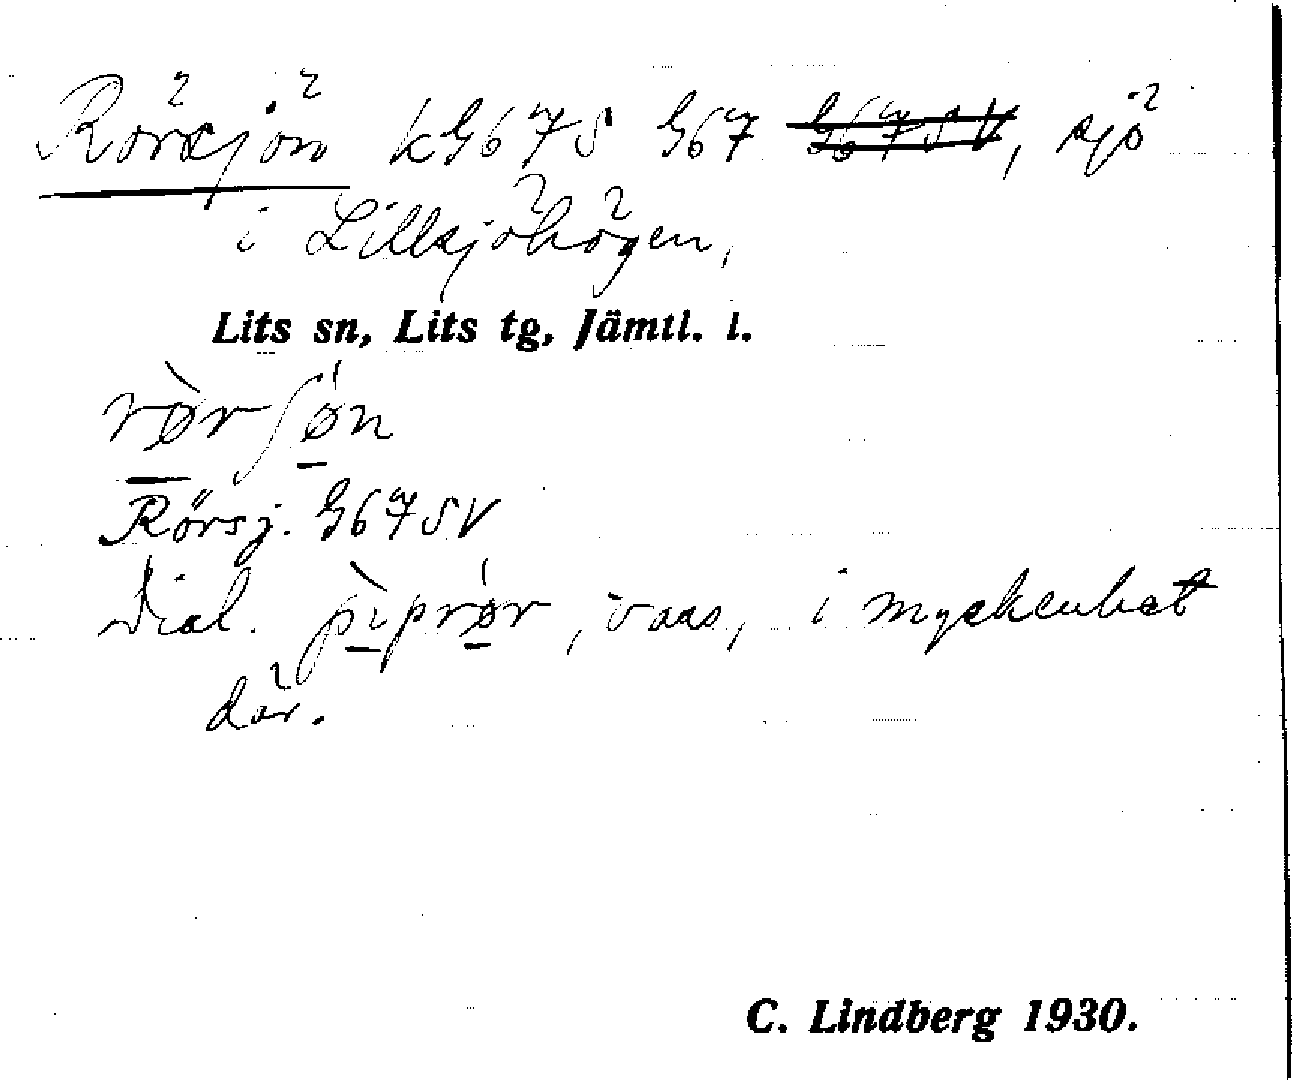 Rörsjön kG67S G67 G67SV, sjö
i Lillsjöhögen,
Lits sn, Lits tg, Jämtl. l.
rø̀rʃǿn
Rörsj. G67SV
Dial. pìprǿr, vass, i myckenhet
där.
C. Lindberg 1930.